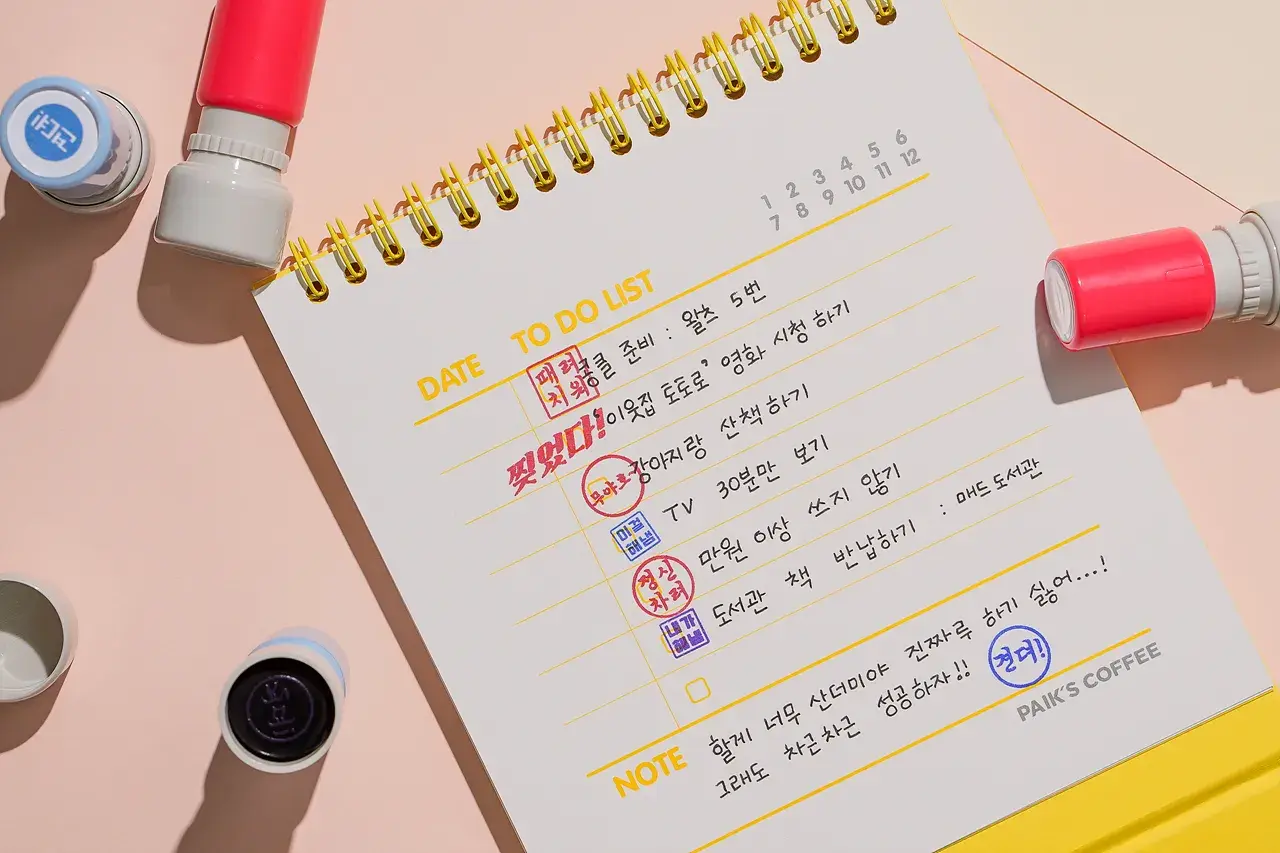 1 2 3 4 5 6
7 8 9 10 11 12
DATE TO DO LIST
때려 치워 콩쿨 준비 : 왈츠 5번
찢었다! '이웃집 토토로' 영화 시청하기
무야호 강아지랑 산책하기
미결 해냄 TV 30분만 보기
정신 차려 만원 이상 쓰지 않기
내가 해냄 도서관 책 반납하기 : 매드도서관
NOTE 할게 너무 산더미야 진짜루 하기 싫어...!
그래도 차근차근 성공하자!! 견뎌!
PAIK'S COFFEE